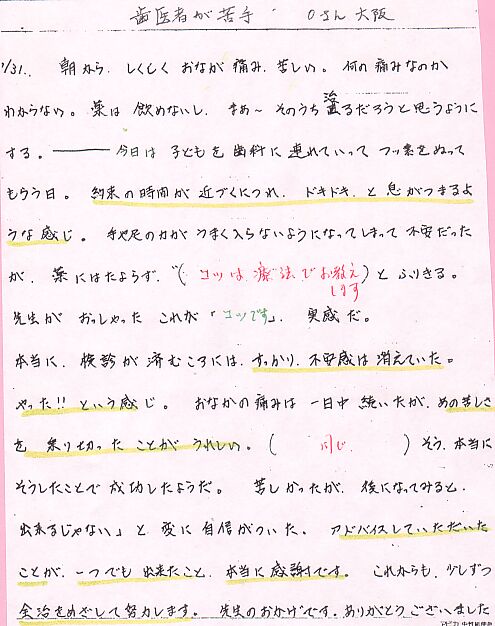 歯医者が苦手 Oさん 大阪
1/31.. 朝から、しくしくおなかが痛み、苦しい。何の痛みなのか
わからない。薬は飲めないし、まあ〜そのうち治るだろうと思うように
する。――今日は子どもを歯科に連れていってフッ素をぬって
もらう日。約束の時間が近づくにつれ、ドキドキ、と息がつまるよ
うな感じ。手や足の力がうまく入らないようになってしまって不安だった
が、薬にはたよらず、"(コツは療法でお教えします)とふりきる。
先生がおっしゃったこれが「コツです」、実感だ。
本当に、検診が済むころには、すっかり、不安感は消えていた。
やった!!という感じ。おなかの痛みは一日中続いたが、あの苦しさ
を乗り切ったことがうれしい。(同じ)そう、本当に
そうしたことで成功したようだ。苦しかったが、後になってみると、
出来るじゃない」と変に自信がついた。アドバイスしていただいた
ことが、一つでも出来たこと、本当に感謝です。これからも、少しずつ
全治をめざして努力します。先生のおかげです。ありがとうございました